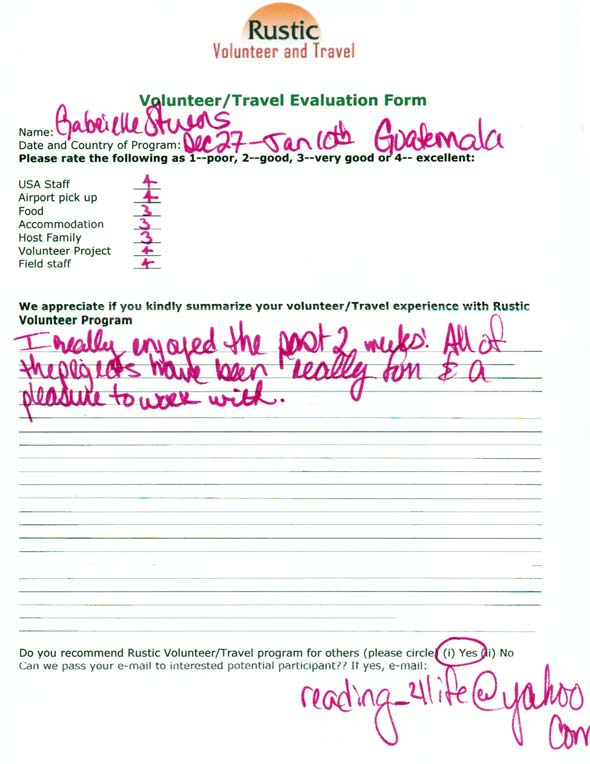 Rustic
Volunteer and Travel
Volunteer/Travel Evaluation Form
Name: Gabrielle Stevens
Date and Country of Program: Dec 27 - Jan 10th Guatemala
Please rate the following as 1--poor, 2--good, 3--very good or 4-- excellent:
USA Staff 4
Airport pick up 4
Food 3
Accommodation 3
Host Family 3
Volunteer Project 4
Field staff 4
We appreciate if you kindly summarize your volunteer/Travel experience with Rustic
Volunteer Program
I really enjoyed the past 2 weeks! All of
the projects have been really fun & a
pleasure to work with.
Do you recommend Rustic Volunteer/Travel program for others (please circle) (i) Yes (ii) No
Can we pass your e-mail to interested potential participant?? If yes, e-mail:
reading_4life@yahoo
com